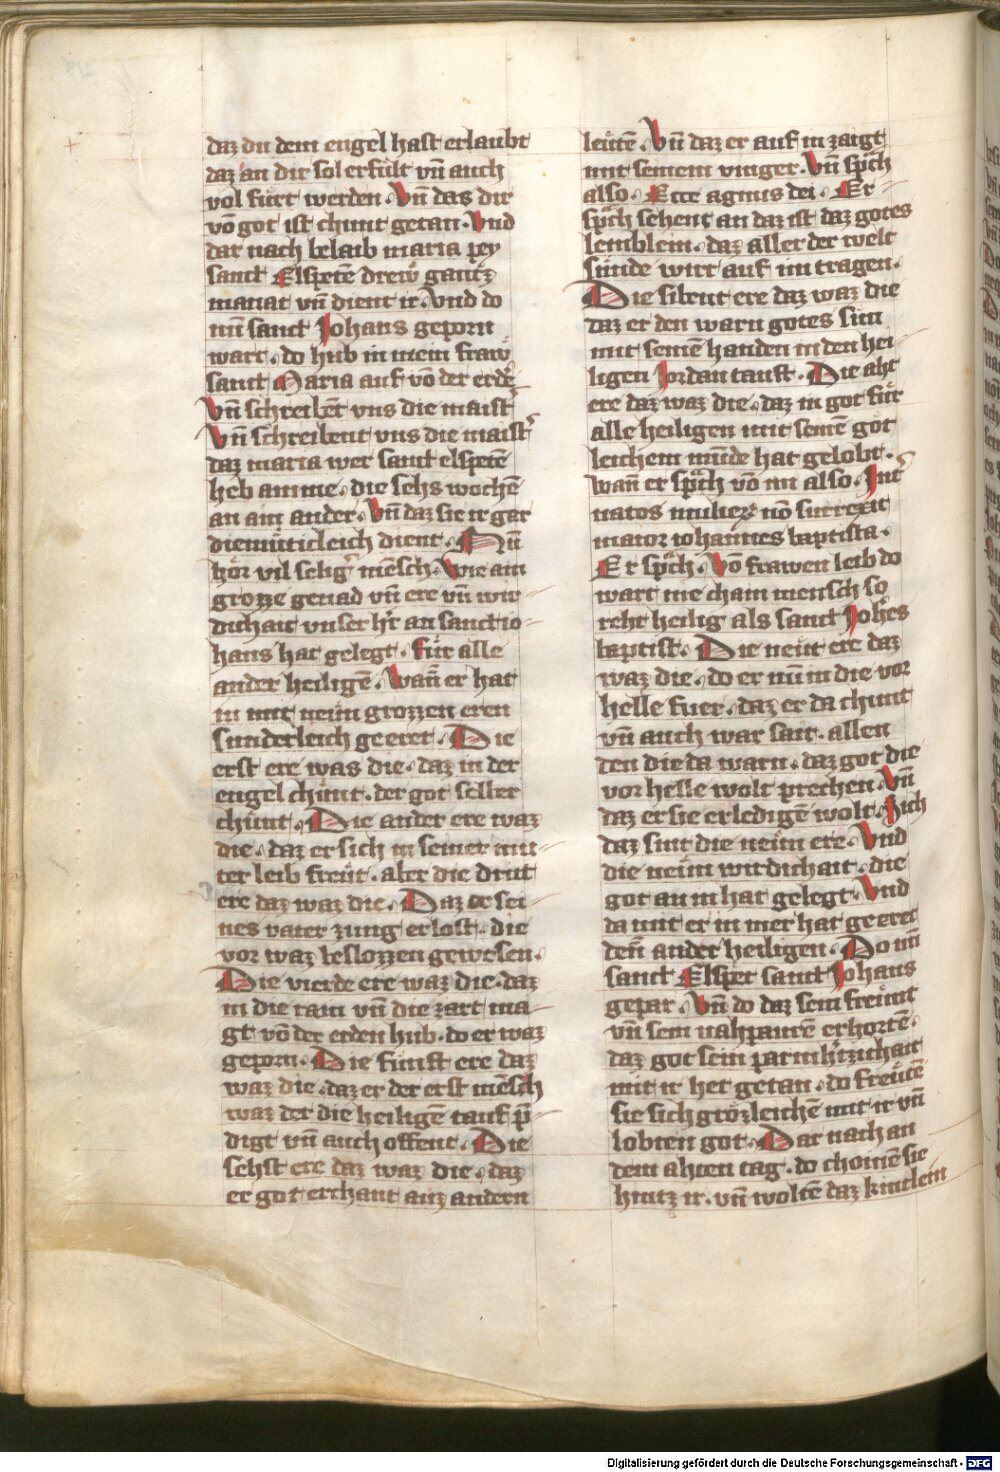 daz du dem engel hast erlaubt
daz an dir sol erfült vn̄ auch
vol fürt werden. Vn̄ das dir
vō got ist chunt getan. Vnd
dar nach belaib maria pey
sanct Elspetē drew gantz
manat vn̄ dient ir. Vnd do
nu sanct Johans geporn
wart. do hub in mein fraw
sanct Maria auf vō der erde
Vn̄ schreibēt vns die maistʼ
Vn̄ schreibent vns die maistʼ
daz maria wer sanct elspetē
heb amme. die sehs wochē
an ain ander. Vn̄ daz sie ir gar
diemüticleich dient. Nu
hör vil seligʼ mēsch. Wie ain
grozze genad vn̄ ere vn̄ wir-
dichait vnser hʼr an sanct io-
hans hat gelegt. für alle
ander heiligē. Wan̄ er hat
in mit neün grozzen eren
sunderleich geeret. Die
erst ere was die. daz in der
engel chünt. der got selber
chünt. Die ander ere waz
die. daz er sich in seiner mu-
ter leib freüt. aber die drit
ere daz waz die. Daz er sei-
nes vater zung erlost. die
vor waz beslozzen gewesen.
Die vierde ere waz die. daz
in die rain vn̄ die zart ma-
gt vō der erden hub. do er waz
geporn. Die fümft ere daz
waz die. daz er der erst mēsch
waz der die heiligē tauf p̄-
digt vn̄ auch offent. Die
sehst ere daz waz die. daz
er got erchant auz andern
leütē. Vn̄ daz er auf in zaigt
mit seinem vinger. Vn̄ spͣch
also. Ecce agnus dei. Er
spͣch sehent an daz ist daz gotes
lemblein. daz aller der welt
sünde wirt auf im tragen.
Die sibent ere daz waz die
daz er den warn gotes sun
mit seinē handen in den hei-
ligen Jordan tauft. Die aht
ere daz waz die. daz in got für
alle heiligen mit seinē göt
leichem munde hat gelobt.
wan̄ er spͣch vō im also. Intʼ
natos mulierꝝ nō surrexit
maior iohannes baptista.
Er spͣch. Vō frawen leib do
wart nie chain mensch so
reht heilig als sanct Johēs
baptist. Die neüt ere daz
waz die. do er nu in die vor
helle fuer. daz er da chunt
vn̄ auch war sait. allen
den die da warn. daz got die
vor helle wolt prechen. Vn̄
daz er sie erledigē wolt. Sich
daz sint die neün ere. Vnd
die neün wirdichait. die
got an in hat gelegt. Vnd
da mit er in mer hat geeret
den̄ ander heiligen. Do nu
sanct Elspet sanct Johans
gepar. Vn̄ do daz sein freünt
vn̄ sein nahpaurē erhortē.
daz got sein parmhʼtzichait
mit ir het getan. do freütē
sie sich grözleichē mit ir vn̄
lobten got. Dar nach an
dem ahten tag. do chomē sie
hintz ir. vn̄ woltē daz kintlein
Digitalisierung gefördert durch die Deutsche Forschungsgemeinschaft - DFG